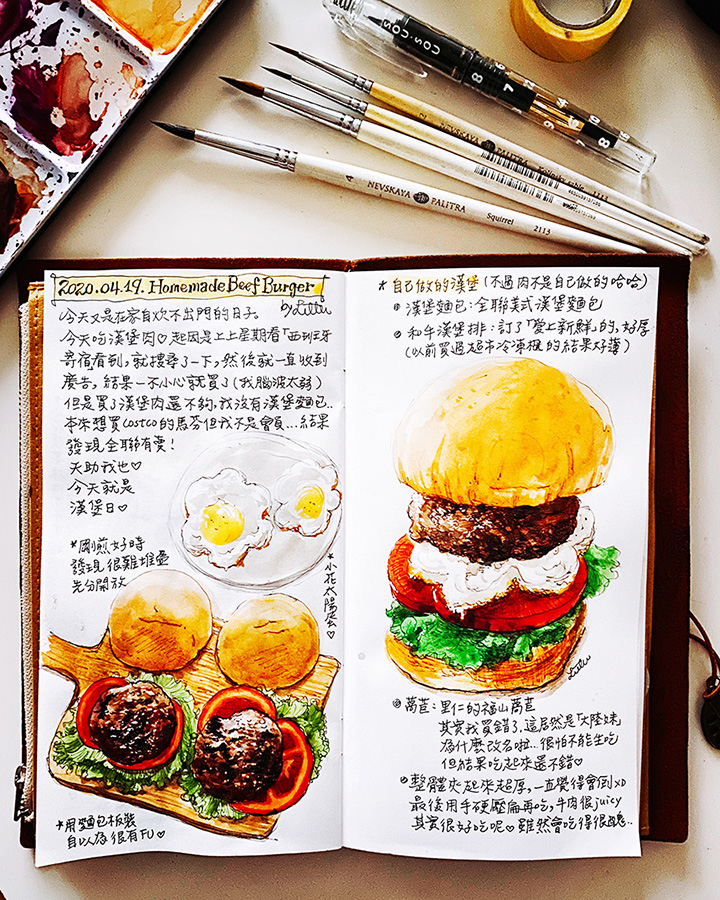 SOU·SOU
NEVSKAYA PALITRA
NEVSKAYA PALITRA Squirrel 2113
2020.04.19. Homemade Beef Burger
by Littu
今天又是在家自炊不出門的日子。
今天吃漢堡肉♡起因是上上星期看「西班牙
寄宿看到, 就搜尋了一下, 然後就一直收到
廣告, 結果一不小心就買了(我腦波太弱)
但是買了漢堡肉還不夠, 我沒有漢堡麵包..
本來想買costco的馬芬但我不是會員...結果
發現全聯有賣!
天助我也♡
今天就是
漢堡日♡
*剛煎好時
發現很難堆疊
先分開放
*小花太陽蛋♡
*用麵包板裝
自以為很有FU♡
*自己做的漢堡(不過肉不是自己做的哈哈)
漢堡麵包:全聯美式漢堡麵包
和牛漢堡排:訂了「愛上新鮮」的, 好厚
(以前買過超市冷凍櫃的結果好薄)
Littu
萵苣:里仁的福山萵苣
其實我買錯了, 這居然是「大陸妹
為什麼改名啦...很怕不能生吃
但結果吃起來還不錯♡
整體夾起來超厚, 一直覺得會倒XD
最後用手硬壓扁再吃, 牛肉很juicy
其實很好吃呢♡雖然會吃得很醜..